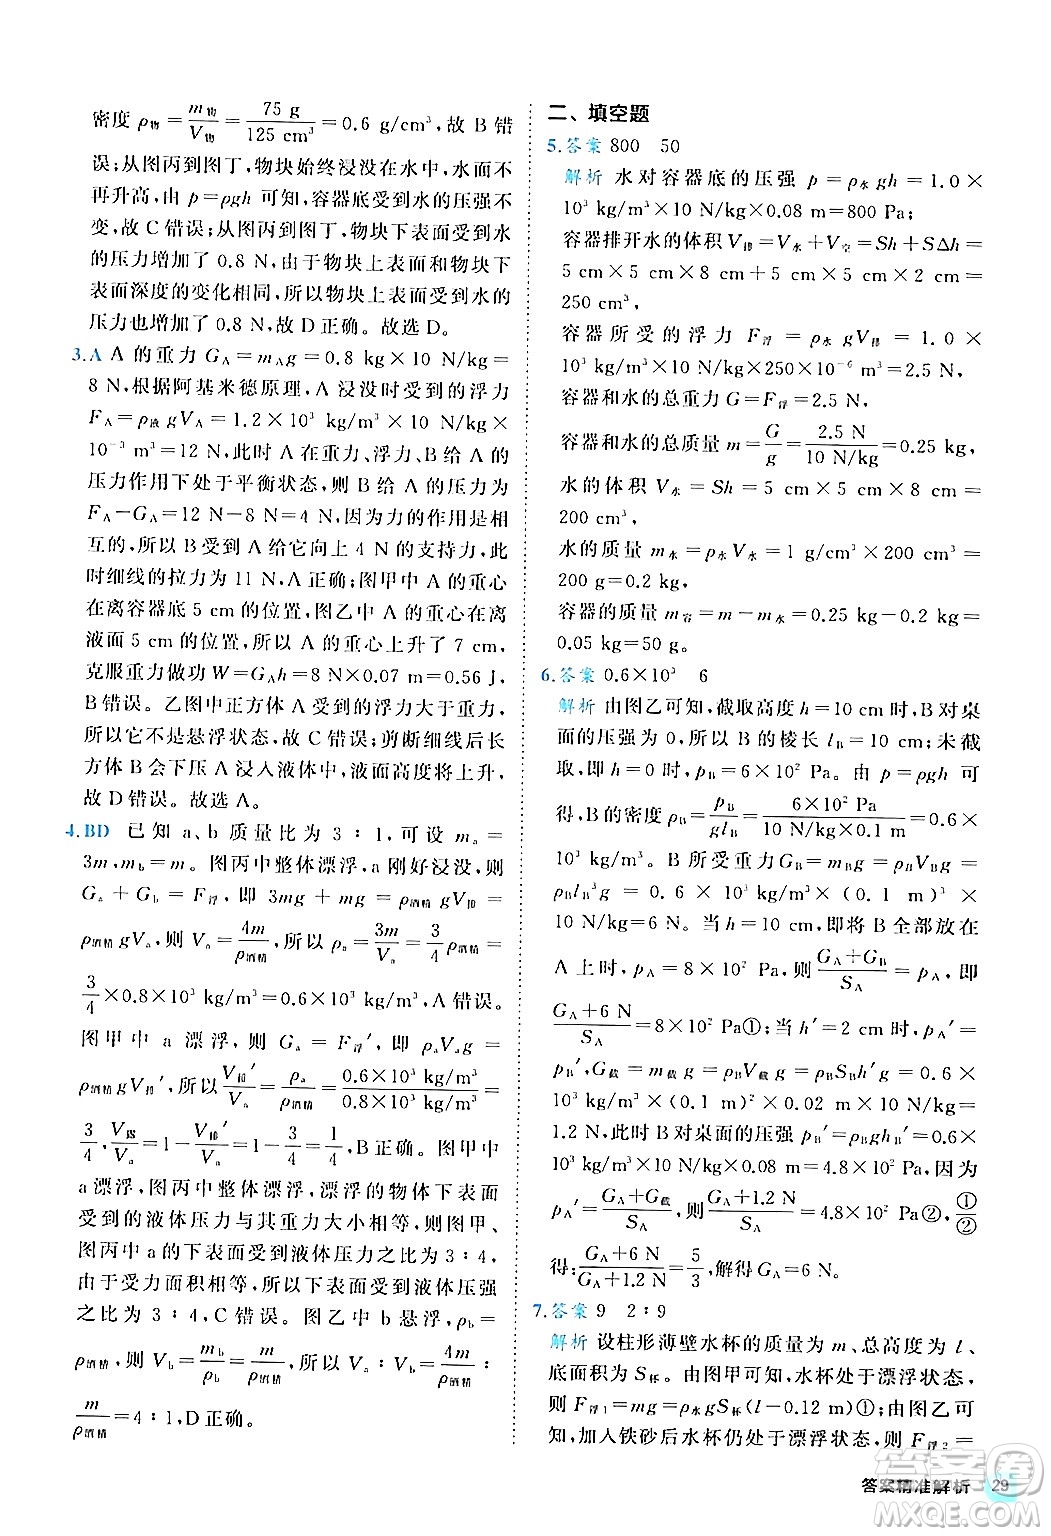 密度 ρ物 = m物/V物 = 75 g/125 cm³ = 0.6 g/cm³，故 B 错
误；从图丙到图丁，物块始终浸没在水中，水面不
再升高，由 p=ρgh 可知，容器底受到水的压强不
变，故 C 错误；从图丙到图丁，物块下表面受到水
的压力增加了 0.8 N，由于物块上表面和物块下
表面深度的变化相同，所以物块上表面受到水的
压力也增加了 0.8 N，故 D 正确。故选 D。
3.A A 的重力 G_A=m_A g=0.8 kg×10 N/kg=
8 N，根据阿基米德原理，A 浸没时受到的浮力
F_A=ρ液 gV_A=1.2×10³ kg/m³×10 N/kg×
10⁻³ m³=12 N，此时 A 在重力、浮力、B 给 A 的
压力作用下处于平衡状态，则 B 给 A 的压力为
F_A−G_A=12 N−8 N=4 N，因为力的作用是相
互的，所以 B 受到 A 给它向上 4 N 的支持力，此
时细线的拉力为 11 N，A 正确；图甲中 A 的重心
在离容器底 5 cm 的位置，图乙中 A 的重心在离
液面 5 cm 的位置，所以 A 的重心上升了 7 cm，
克服重力做功 W=G_A h=8 N×0.07 m=0.56 J，
B 错误。乙图中正方体 A 的浮力大于重力，
所以它不是悬浮状态，故 C 错误；剪断细线后长
方体 B 会下压 A 浸入液体中，液面高度将上升，
故 D 错误。故选 A。
4.BD 已知 a、b 质量比为 3∶1，可设 m_a=
3m，m_b=m。图丙中整体漂浮，a 刚好浸没，则
G_a+G_b=F浮，即 3mg+mg=ρ酒精 gV排=
ρ酒精 gV_a，则 V_a=4m/ρ酒精，所以 ρ_a=3m/V_a=3/4 ρ酒精=
3/4×0.8×10³ kg/m³=0.6×10³ kg/m³，A 错误。
图甲中 a 漂浮，则 G_a=F浮′，即 ρ_a V_a g=
ρ酒精 gV排′，所以 V排′/V_a=ρ_a/ρ酒精=0.6×10³ kg/m³/0.8×10³ kg/m³=
3/4，V露/V_a=1−V排′/V_a=1−3/4=1/4，B 正确。图甲中
a 漂浮，图丙中整体漂浮，漂浮的物体下表面
受到的液体压力与其重力大小相等，则图甲、
图丙中 a 的下表面受到液体压力之比为 3∶4，
由于受力面积相等，所以下表面受到液体压强
之比为 3∶4，C 错误。图乙中 b 悬浮，ρ_b=
ρ酒精，则 V_b=m_b/ρ_b=m/ρ酒精，所以 V_a∶V_b=4m/ρ酒精∶
m/ρ酒精=4∶1，D 正确。
二、填空题
5.答案 800 50
解析 水对容器底的压强 p=ρ水 gh=1.0×
10³ kg/m³×10 N/kg×0.08 m=800 Pa；
容器排开水的体积 V排=V水+V空=Sh+SΔh=
5 cm×5 cm×8 cm+5 cm×5 cm×2 cm=
250 cm³，
容器所受的浮力 F浮=ρ水 gV排=1.0×
10³ kg/m³×10 N/kg×250×10⁻⁶ m³=2.5 N，
容器和水的总重力 G=F浮=2.5 N，
容器和水的总质量 m=G/g=2.5 N/10 N/kg=0.25 kg，
水的体积 V水=Sh=5 cm×5 cm×8 cm=
200 cm³，
水的质量 m水=ρ水V水=1 g/cm³×200 cm³=
200 g=0.2 kg，
容器的质量 m容=m−m水=0.25 kg−0.2 kg=
0.05 kg=50 g。
6.答案 0.6×10³ 6
解析 由图乙可知，截取高度 h=10 cm 时，B 对桌
面的压强为 0，所以 B 的棱长 l_B=10 cm；未截
取，即 h=0 时，p_B=6×10² Pa。由 p=ρgh 可
得，B 的密度 ρ_B=p_B/gl_B=6×10² Pa/10 N/kg×0.1 m=0.6×
10³ kg/m³。B 所受重力 G_B=m_B g=ρ_B V_B g=
ρ_B l_B³g=0.6×10³ kg/m³×(0.1 m)³×
10 N/kg=6 N。当 h=10 cm，即将 B 全部放在
A 上时，p_A=8×10² Pa，则 G_A+G_B/S_A=p_A，即
G_A+6 N/S_A=8×10² Pa①；当 h′=2 cm 时，p_A′=
p_B′，G截=m截 g=ρ_B V截 g=ρ_B S_B h′g=0.6×
10³ kg/m³×(0.1 m)²×0.02 m×10 N/kg=
1.2 N，此时 B 对桌面的压强 p_B′=ρ_B gh_B′=0.6×
10³ kg/m³×10 N/kg×0.08 m=4.8×10² Pa，因为
p_A′=G_A+G截/S_A=G_A+1.2 N/S_A=4.8×10² Pa②，①/②
得：G_A+6 N/G_A+1.2 N=5/3，解得 G_A=6 N。
7.答案 9 2∶9
解析 设柱形薄壁水杯的质量为 m、总高度为 l、
底面积为 S杯；由图甲可知，水杯处于漂浮状态，
则 F浮1=mg=ρ水 gS杯(l−0.12 m)①；由图乙可
知，加入铁砂后水杯仍处于漂浮状态，F浮2=
答案精准解析 29
答案圈
MXQE.COM